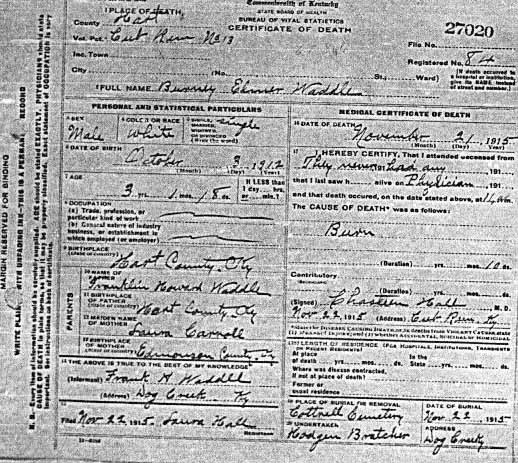 Commonwealth of Kentucky
STATE BOARD OF HEALTH
BUREAU OF VITAL STATISTICS
CERTIFICATE OF DEATH
1 PLACE OF DEATH,
County Hart
Vot. Pct. Cub Run No 13
Inc. Town
City (No. St., Ward)
27020
File No.
Registered No. 84
(If death occurred in a hospital or institution, give its NAME instead of street and number.)
2 FULL NAME Burney Elmer Waddle
PERSONAL AND STATISTICAL PARTICULARS
3 SEX Male
4 COLOR OR RACE White
5 SINGLE, MARRIED, WIDOWED, OR DIVORCED (Write the word) Single
6 DATE OF BIRTH
October 3, 1912
(Month) (Day) (Year)
7 AGE
3 yrs. 1 mos. 18 ds.
If LESS than 1 day, hrs. or min.?
8 OCCUPATION
(a) Trade, profession, or particular kind of work
(b) General nature of industry business, or establishment in which employed (or employer)
9 BIRTHPLACE
Hart County, Ky
PARENTS
10 NAME OF FATHER
Franklin Howard Waddle
11 BIRTHPLACE OF FATHER
Hart County, Ky
12 MAIDEN NAME OF MOTHER
Laura Carroll
13 BIRTHPLACE OF MOTHER
Edmonson County, Ky
14 THE ABOVE IS TRUE TO THE BEST OF MY KNOWLEDGE
(Informant) Frank H Waddle
(Address) Dog Creek Ky
15 Filed Nov 22 1915. Laura Hall
REGISTRAR
MEDICAL CERTIFICATE OF DEATH
16 DATE OF DEATH
November 21, 1915
(Month) (Day) (Year)
17 I HEREBY CERTIFY, That I attended deceased from
They never had any 191
that I last saw h alive on Physician 191
and that death occurred, on the date stated above, at
The CAUSE OF DEATH* was as follows:
Burn
(Duration) yrs. mos. 10 ds.
Contributory
(Duration) yrs. mos. ds.
(Signed) Chasteen Hall M. D.
Nov 22, 1915 (Address) Cub Run, Ky
18 LENGTH OF RESIDENCE (FOR HOSPITALS, INSTITUTIONS, TRANSIENTS OR RECENT RESIDENTS)
At place of death yrs. mos. ds.
In the State yrs. mos. ds.
Where was disease contracted, If not at place of death?
Former or usual residence
19 PLACE OF BURIAL OR REMOVAL
Cottrell Cemetery
DATE OF BURIAL
Nov 22 1915
20 UNDERTAKER
Hodgen Bratcher
ADDRESS
Dog Creek
MARGIN RESERVED FOR BINDING